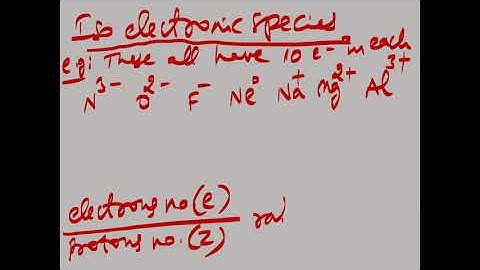 Iso electronic species
eg: These all have 10 e- in each
N³⁻ O²⁻ F⁻ Ne⁰ Na⁺ Mg²⁺ Al³⁺
electrons no(e)
protons no.(Z)